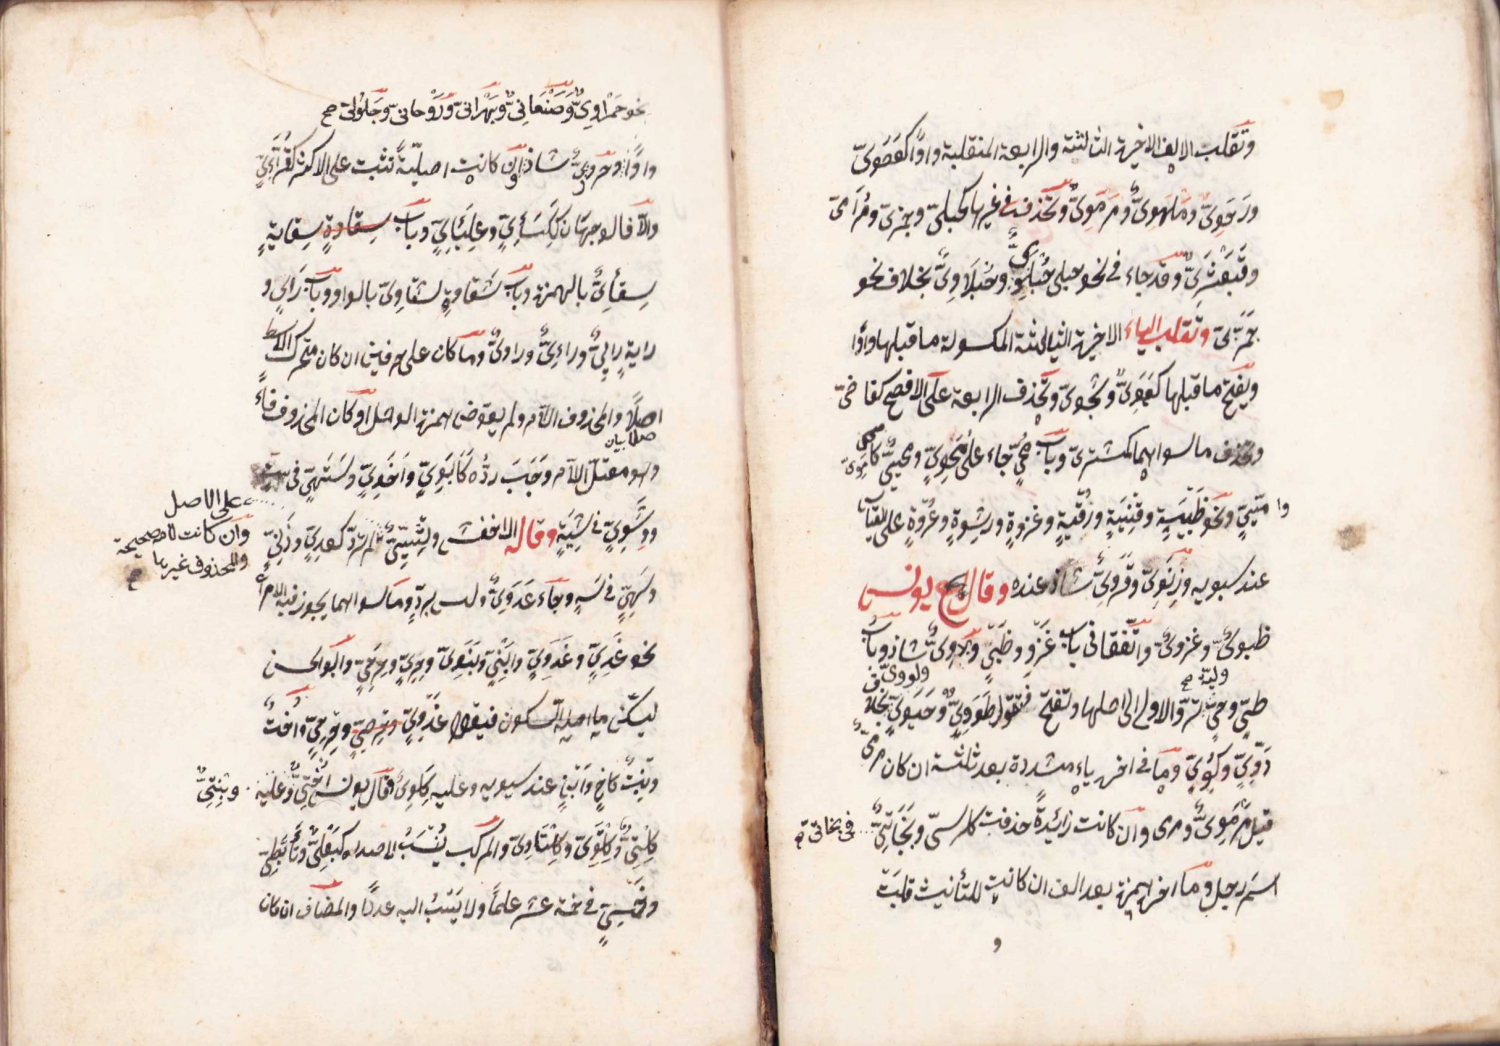 وتقلب الالف الاخيرة الثالثة والرابعة المنقلبة واوا كعصويّ
ورحويّ وملهويّ ومرمويّ وتحذف في غيرها كحبليّ وجمزيّ ومراميّ
وقبعثريّ وقد جاء في نحو حبلى حبلويّ وحبلاويّ بخلاف نحو
جمزى وتقلب الياء الاخيرة الثالثة المكسورة ما قبلها واوا
ويفتح ما قبلها كعمويّ وشجويّ وتحذف الرابعة على الافصح كقاضيّ
وتحذف ما سواهما كمشتريّ وباب محيّ جاء على محويّ ومحييّ كامويّ
واميّيّ ونحو ظبية وقنية ورقية وغزوة ورشوة وعروة على القياس
عند سيبويه وزنويّ وقرويّ شاذ عنده وقال يونس
ظبويّ وغزويّ واتفقا في باب غزو وظبي وبدويّ شاذ وباب
طيّ وحيّ تردّ الاولى الى اصلها وتفتح فتقول طوويّ وحيويّ بخلاف
ولية صح
ولوويّ
دوّيّ وكوّيّ وما في اخره ياء مشددة بعد ثلثة ان كان مرميّ
قيل مرمويّ ومرمى وان كانت زائدة حذفت ككرسيّ وبخاتيّ
في بخاتيّ
اسم رجل وما اخره همزة بعد الف ان كانت للتأنيث قلبت
و
نحو حمراويّ وصنعانيّ وبهرانيّ وروحانيّ وجلوليّ صح
واوا وحروريّ شاذ وان كانت اصلية تثبت على الاكثر كقرّائيّ
والا فالوجهان ككسائيّ وعلبائيّ وباب سقاوة سقاية
سقائيّ بالهمزة وباب شقاوة شقاويّ بالواو وباب راي و
راية راييّ ورائيّ وراويّ وما كان على حرفين ان كان متحرك الاوسط
اصلا والمحذوف اللام ولم يعوض همزة الوصل او كان المحذوف فاءً
وهو معتل اللام وجب ردّه كابويّ واخويّ وستهيّ في ست
ووشويّ في شية وقال الاخفش وشييّ على الاصل
وان كانت لامه صحيحة
والمحذوف غيرها
لم تردّ كعديّ وزنيّ
وسهيّ في سه وجاء عدويّ وليس بردّ وما سواهما يجوز فيه الامران
نحو غديّ وغدويّ وابنيّ وبنويّ وحريّ وحرحيّ وابو الحسن
يسكن ما اصله السكون فيقول غدويّ وحرحيّ واخت
وبنت كاخ وابن عند سيبويه وعليه كلويّ وقال يونس اختيّ وبنتيّ وعليه
كلتيّ وكلتويّ وكلتاويّ والمركب ينسب الى صدره كبعليّ وتأبطيّ
وخمسيّ في خمسة عشر علما ولا ينسب اليه عددا والمضاف ان كان